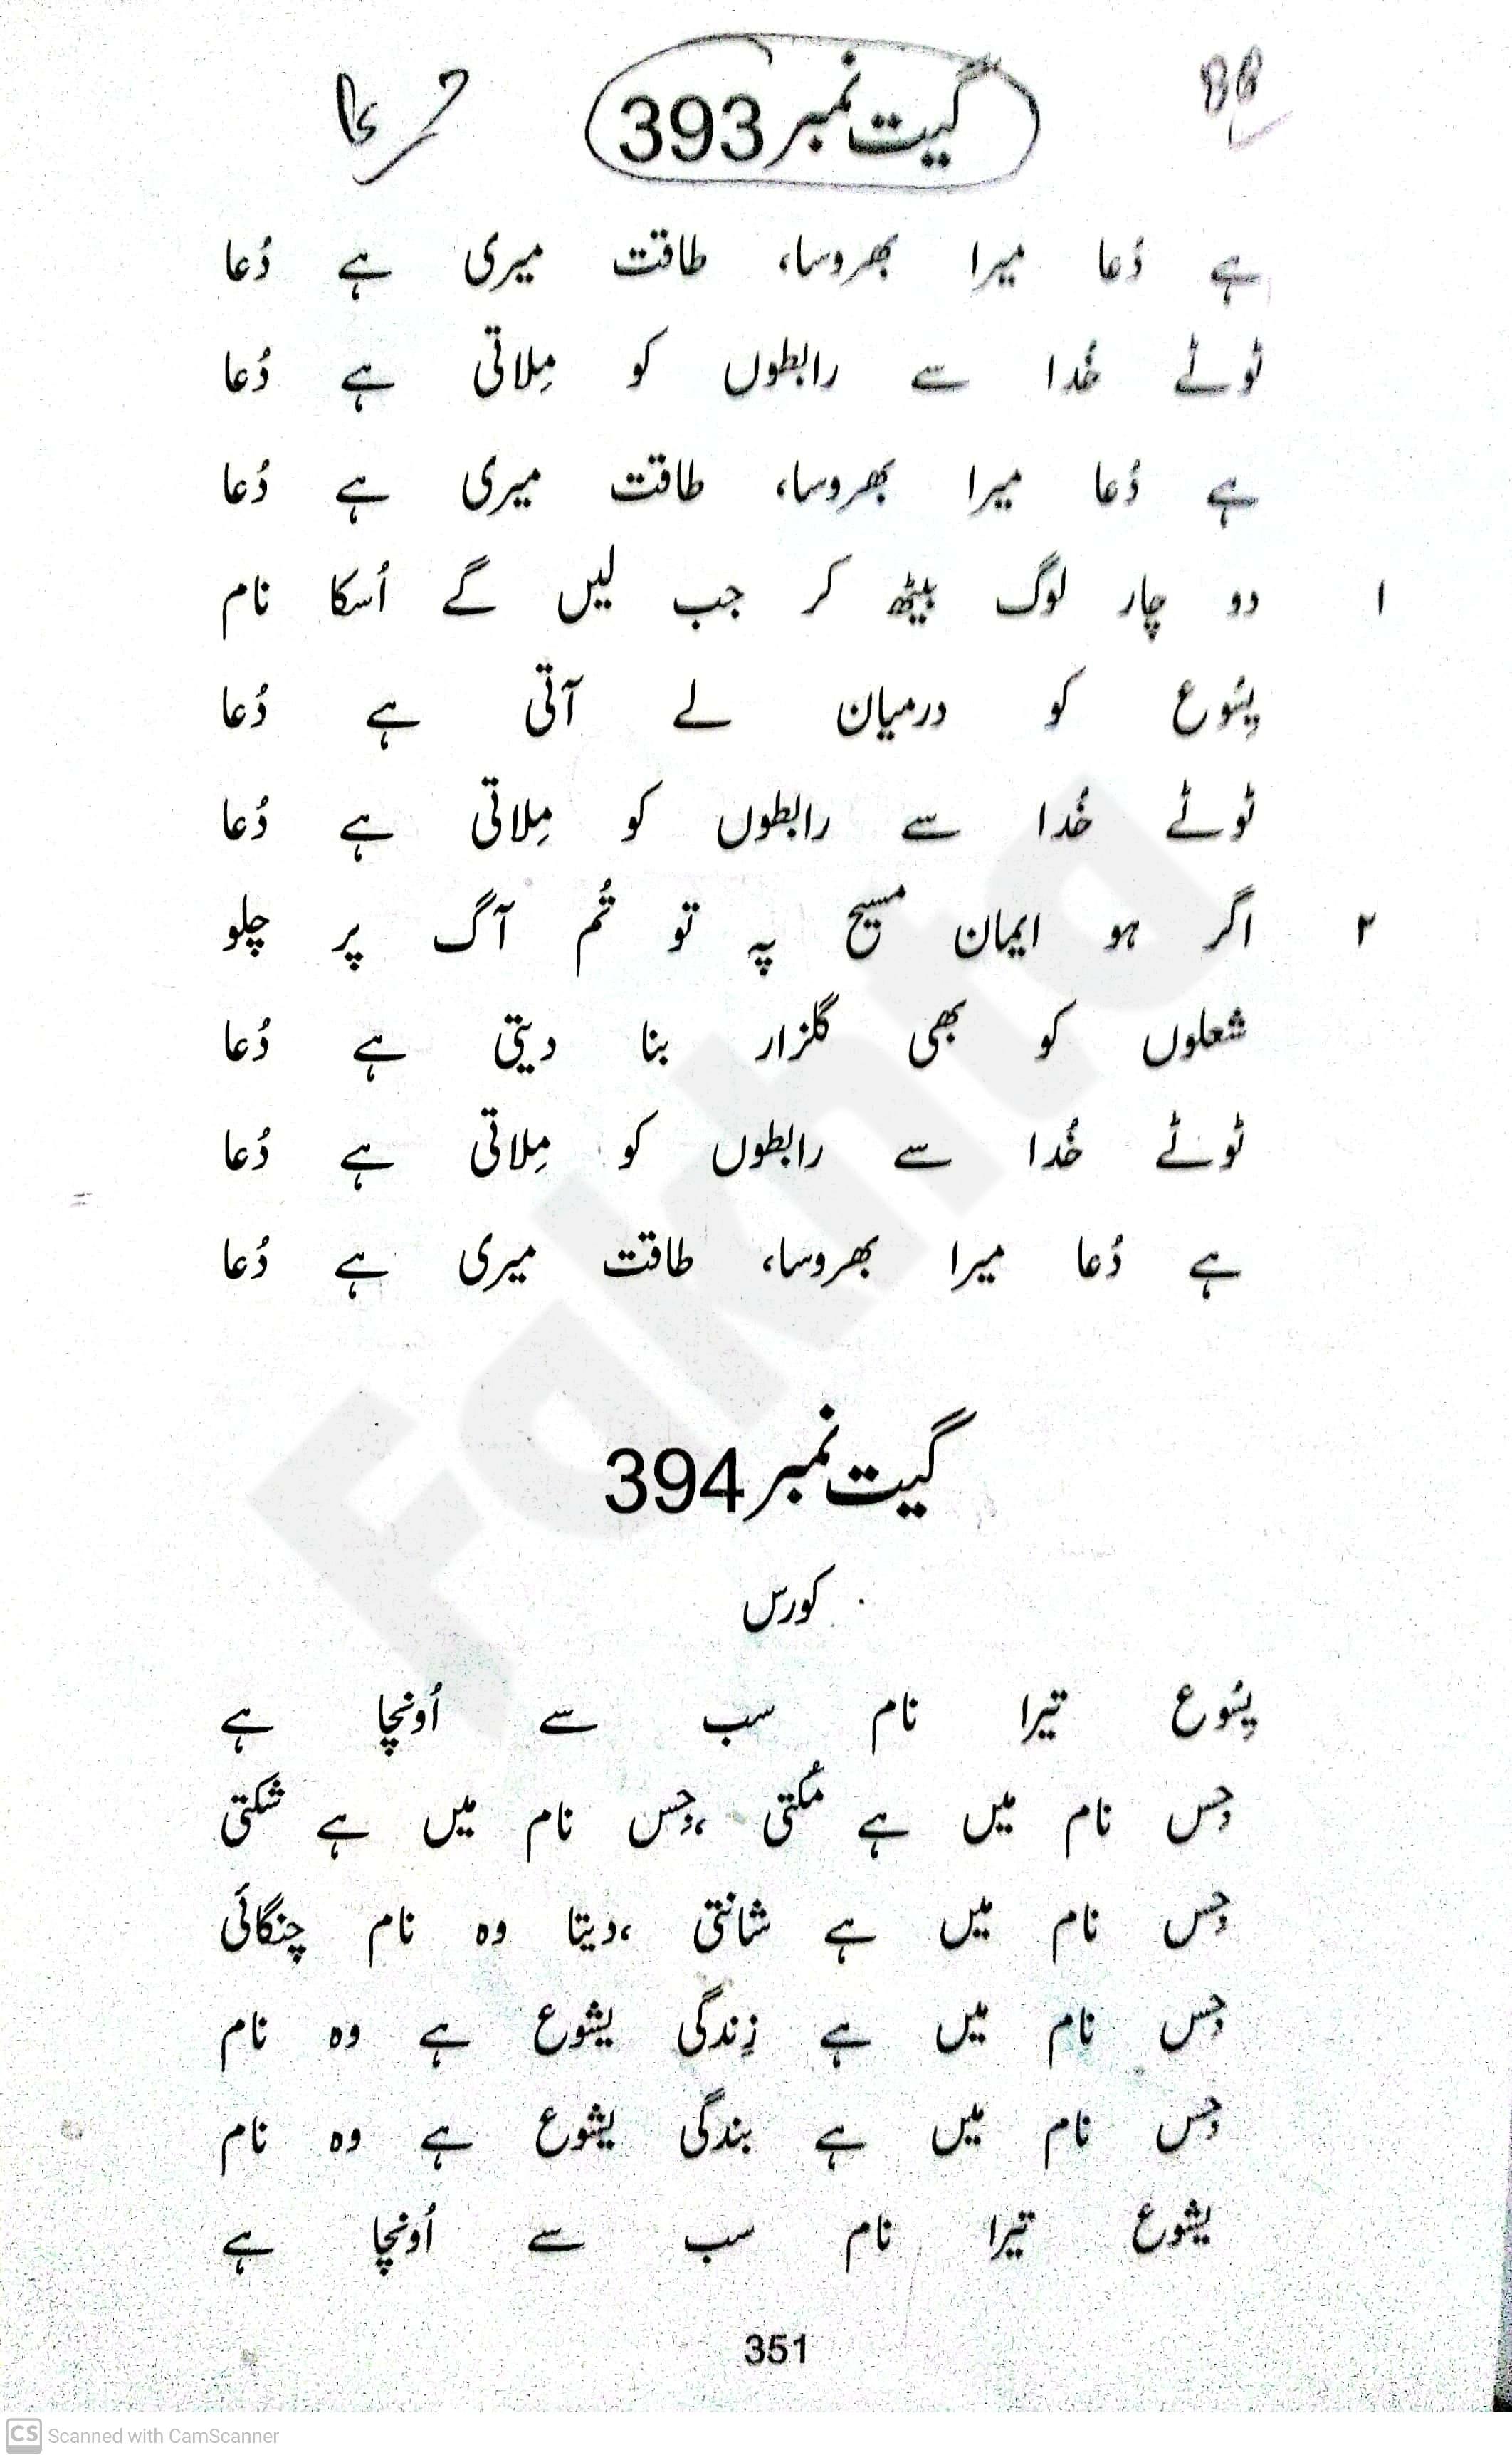 گیت نمبر 393
ہے دُعا میرا بھروسا، طاقت میری ہے دُعا
ٹوٹے خُدا سے رابطوں کو مِلاتی ہے دُعا
ہے دُعا میرا بھروسا، طاقت میری ہے دُعا
۱ دو چار لوگ بیٹھ کر جب لیں گے اُسکا نام
یِسُوع کو درمیان لے آتی ہے دُعا
ٹوٹے خُدا سے رابطوں کو مِلاتی ہے دُعا
۲ اگر ہو ایمان مسیح پہ تو تُم آگ پر چلو
شعلوں کو بھی گلزار بنا دیتی ہے دُعا
ٹوٹے خُدا سے رابطوں کو مِلاتی ہے دُعا
ہے دُعا میرا بھروسا، طاقت میری ہے دُعا
گیت نمبر 394
کورس
یِسُوع تیرا نام سب سے اُونچا ہے
جِس نام میں ہے مُکتی ،جِس نام میں ہے شکتی
جِس نام میں ہے شانتی ،دیتا وہ نام چنگائی
جِس نام میں ہے زِندگی یشوع ہے وہ نام
جِس نام میں ہے بندگی یشوع ہے وہ نام
یشوع تیرا نام سب سے اُونچا ہے
351
Fakhta
CS Scanned with CamScanner